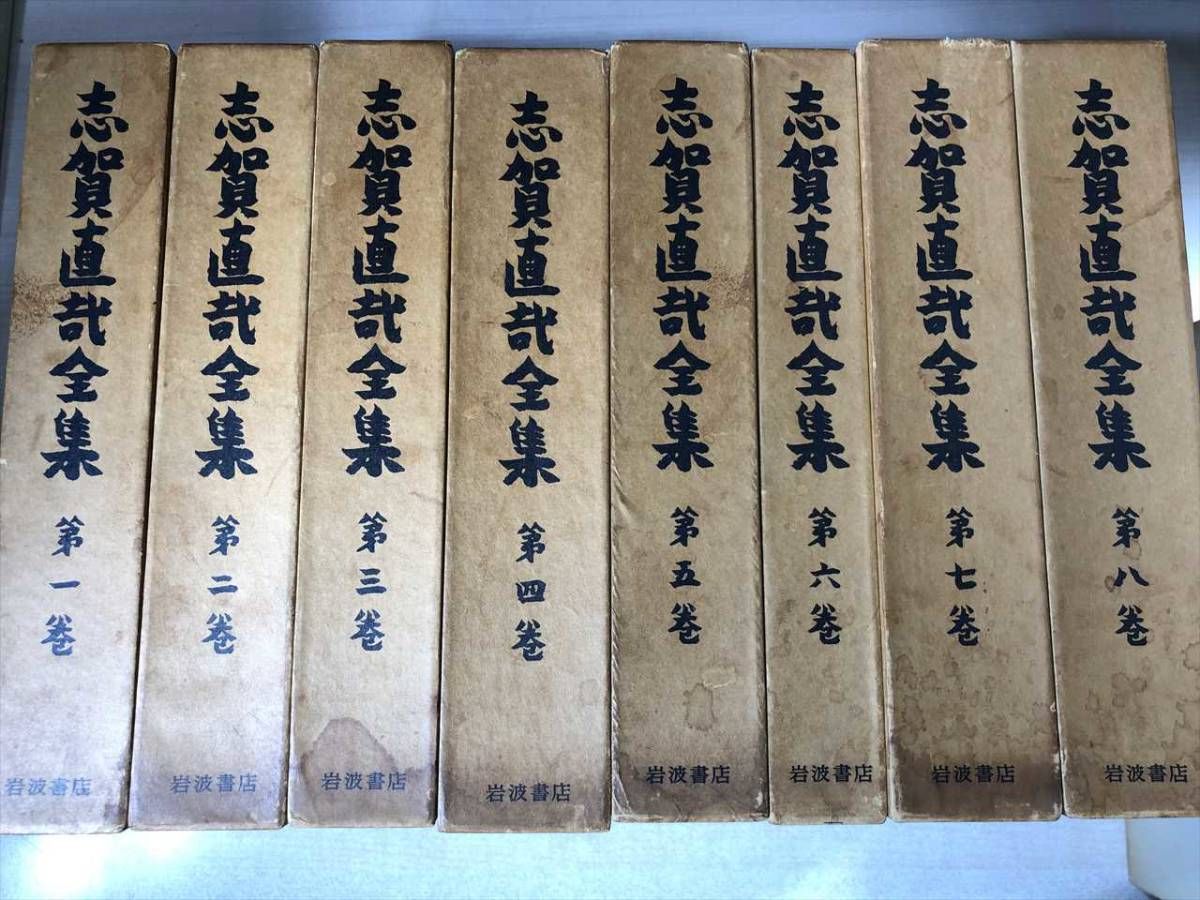 志賀直哉全集 第一巻
岩波書店
志賀直哉全集 第二巻
岩波書店
志賀直哉全集 第三巻
岩波書店
志賀直哉全集 第四巻
岩波書店
志賀直哉全集 第五巻
岩波書店
志賀直哉全集 第六巻
岩波書店
志賀直哉全集 第七巻
岩波書店
志賀直哉全集 第八巻
岩波書店